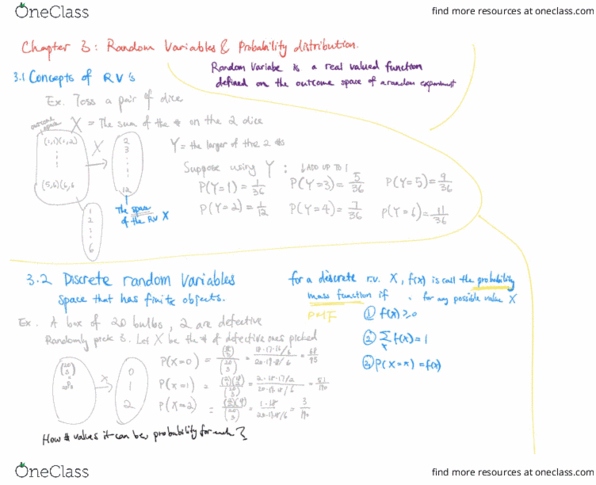 OneClass
find more resources at oneclass.com
Chapter 3: Random Variables & Probability distribution.
Random Variable is a real valued function
defined on the outcome space of a random experiment
3.1 Concepts of RVs
Ex. Toss a pair of dice
outcome space
X = The sum of the # on the 2 dice
(1,1)(1,2)
(5,6)(6,6
X
2
3
12
The space
of the RV X
1
2
6
Y = the larger of the 2 #s
Suppose using Y : ADD UP TO 1
P(Y=1) = 1/36 P(Y=3) = 5/36 P(Y=5) = 9/36
P(Y=2) = 1/12 P(Y=4) = 7/36 P(Y=6) = 11/36
3.2 Discrete random Variables
space that has finite objects.
for a discrete r.v. X, f(x) is call the probability
mass function if · for any possible value X
PMF
① f(x) ≥ 0
② Σ f(x) = 1
x
③ P(X=x) = f(x)
Ex. A box of 20 bulbs, 2 are defective
Randomly pick 3. Let X be the # of defective ones picked
X
0
1
2
P(X=0) =
P(X=1) =
P(X=2) =
How # values it can be, probability for each
OneClass
find more resources at oneclass.com